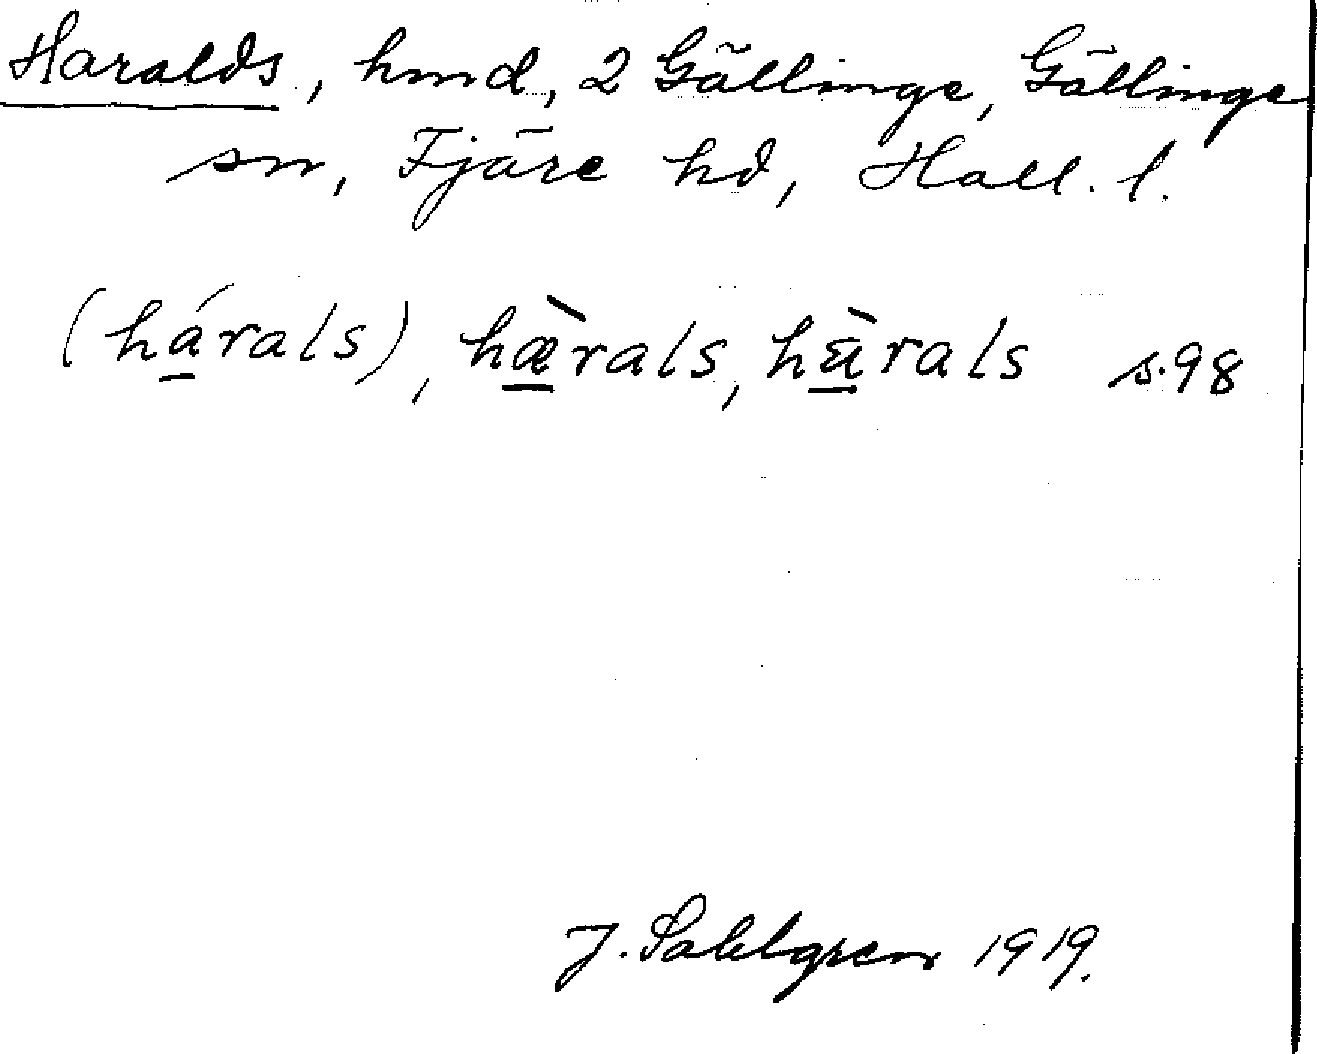 Haralds, hmd, 2 Gällinge, Gällinge
sn, Fjäre hd, Hall. l.
(há̱rals), hæ̱̀rals, hä̱̀rals s.98
J. Sahlgren 1919.